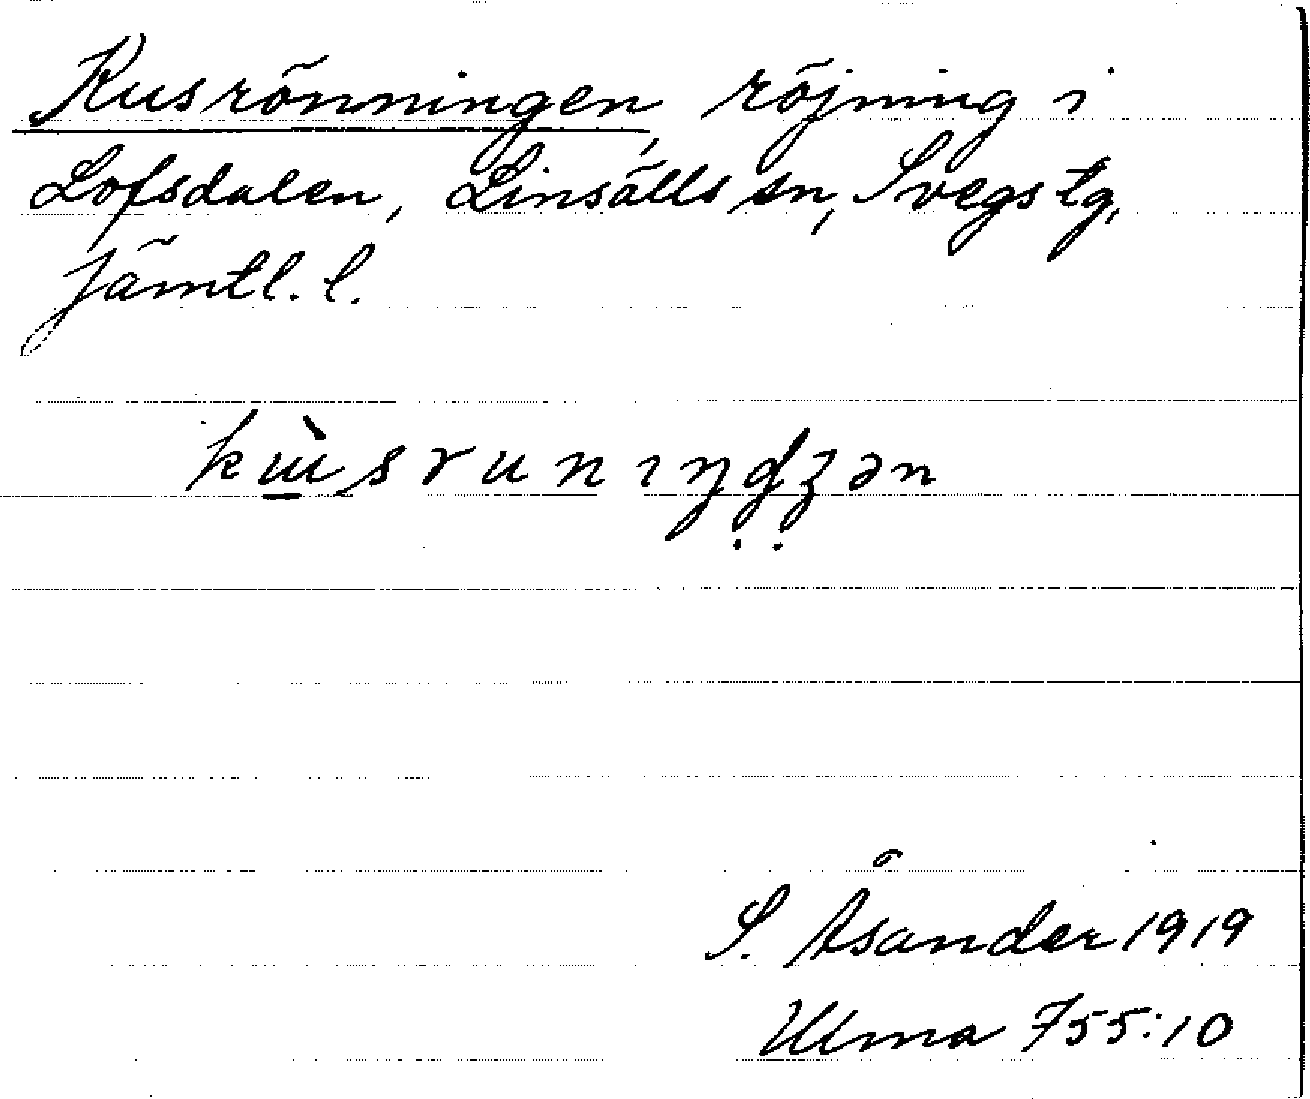 Kusrönningen, röjning i
Lofsdalen, Linsälls sn, Svegs tg,
Jämtl. l.
kɯ̀sruniŋdʒən
S. Åsander 1919
Ulma 755:10